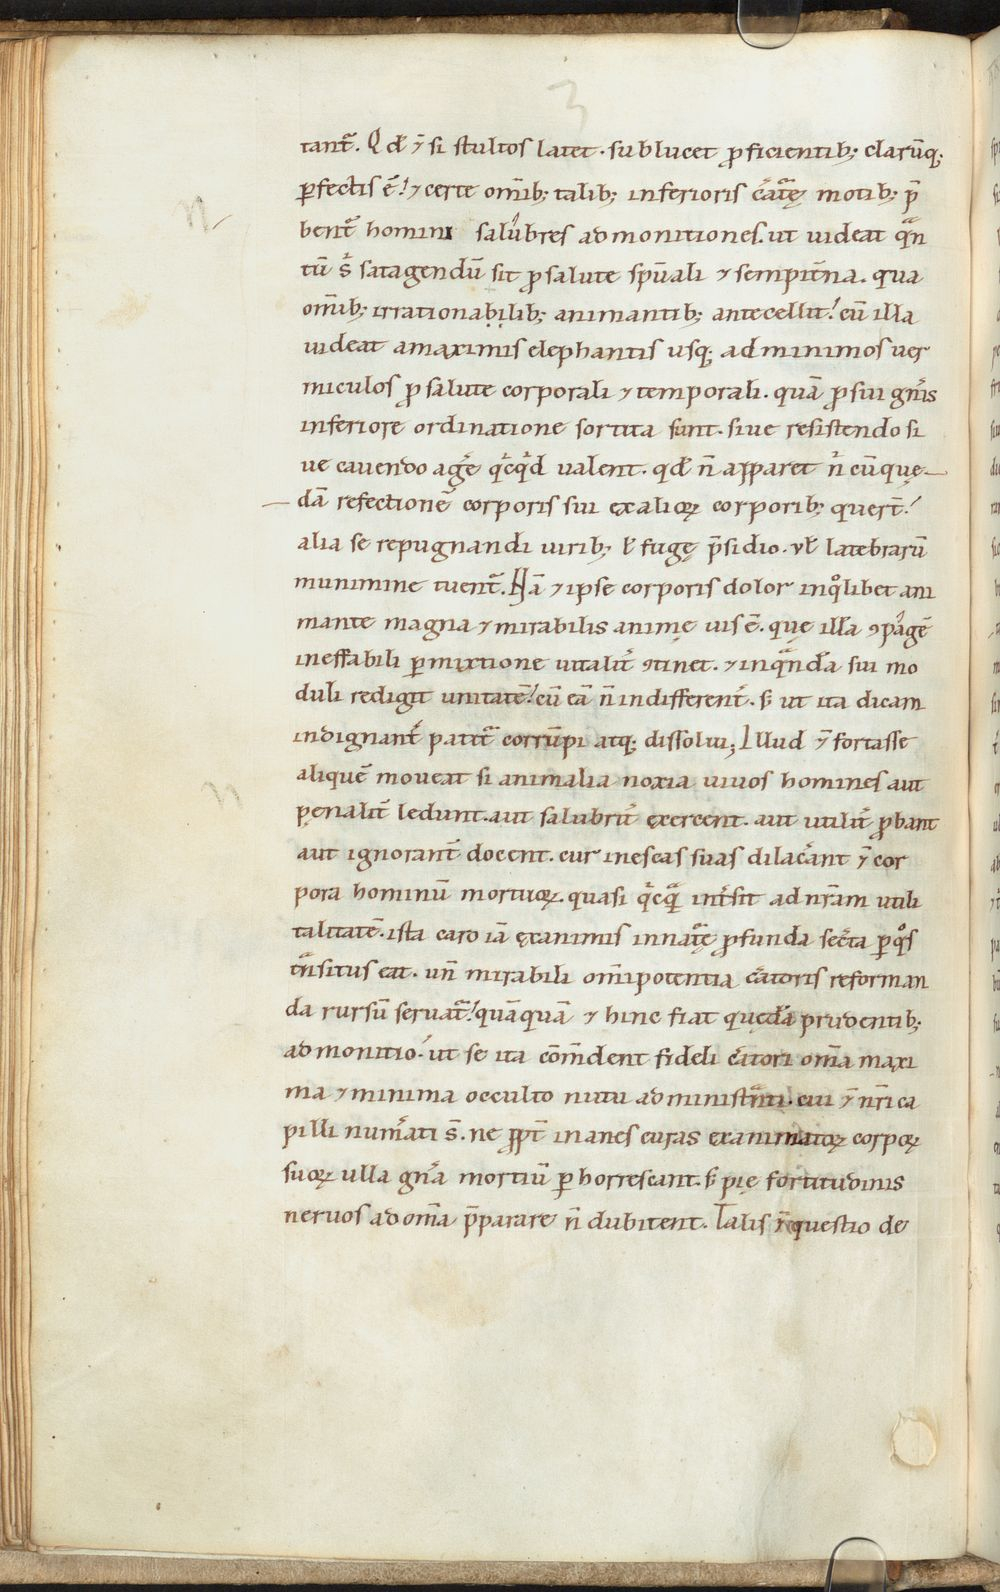 tant᷑. Qđ ⁊̄ si stultos latet. sublucet ꝓficientib; clarūq;
ꝑfectis ē! ⁊ certe om̄ib; talib; inferioris c̾atᷓę motib; p̄
bent᷑ homini salubres admonitiones. ut uideat qᷓn
tū s̾ satagendū sit ꝓ salute sp̄uali ⁊ sempit̄na. qua
om̄ib; irrationabilib; animantib; antecellit! cū illa
uideat a maximis elephantis usq; ad minimos uer
miculos ꝓ salute corporali ⁊ temporali. quā ꝓ sui gn̄is
inferiore ordinatione sortita sunt. siue resistendo si
ue cauendo ag̾e qͥcqͥd ualent. qđ n̄ apparet nͥ cū quę
dā refectionē corporis sui ex alioꝝ corporib; quert̄!
alia se repugnandi uirib; ł fugę p̄sidio. vł latebrarū
munimine tuent᷑. Nā ⁊ ipse corporis dolor in qͦlibet ani
mante magna ⁊ mirabilis anime uis ē. quę illā ꝯpagē
ineffabili ꝑmixtione uitalit̾ ꝯtinet. ⁊ in qᷓndā sui mo
duli redigit unitatē! cū eā n̄ indifferent̾. ſ ut ita dicam
indignant̾ patit᷑ corrūpi atq; dissolui; Illud ⁊̄ fortasse
aliquē moueat si animalia noxia uiuos homines aut
penalit̾ ledunt. aut salubrit̾ exercent. aut utilit̾ ꝓbant
aut ignorant̄ docent. cur in escas suas dilac̾ant ⁊̄ cor
pora hominū mortuoꝝ. quasi qͥcqᷓ int̾sit ad nr̄am utili
talitatē. ista caro iā exanimis in natᷓę ꝓfunda sec̾ta ꝑ qͦs
tᷓnsitus eat. un̄ mirabili om̄ipotentia c̾atoris reforman
da rursū seruat᷑! quāquā ⁊ hinc fiat quędā prudentib;
admonitio! ut se ita cōm̄dent fideli c̾atori om̄a maxi
ma ⁊ minima occulto nutu administᷓnti. cui ⁊̄ nr̄i ca
pilli num̾ati s̄. ne ꝓpt̄ inanes curas exanimatoꝝ corpoꝝ
suoꝝ ulla gn̾a mortiū ꝑhorrescant. ſ pię fortitudinis
neruos ad om̄a p̄parare n̄ dubitent. Talis ⁊̄ questio de